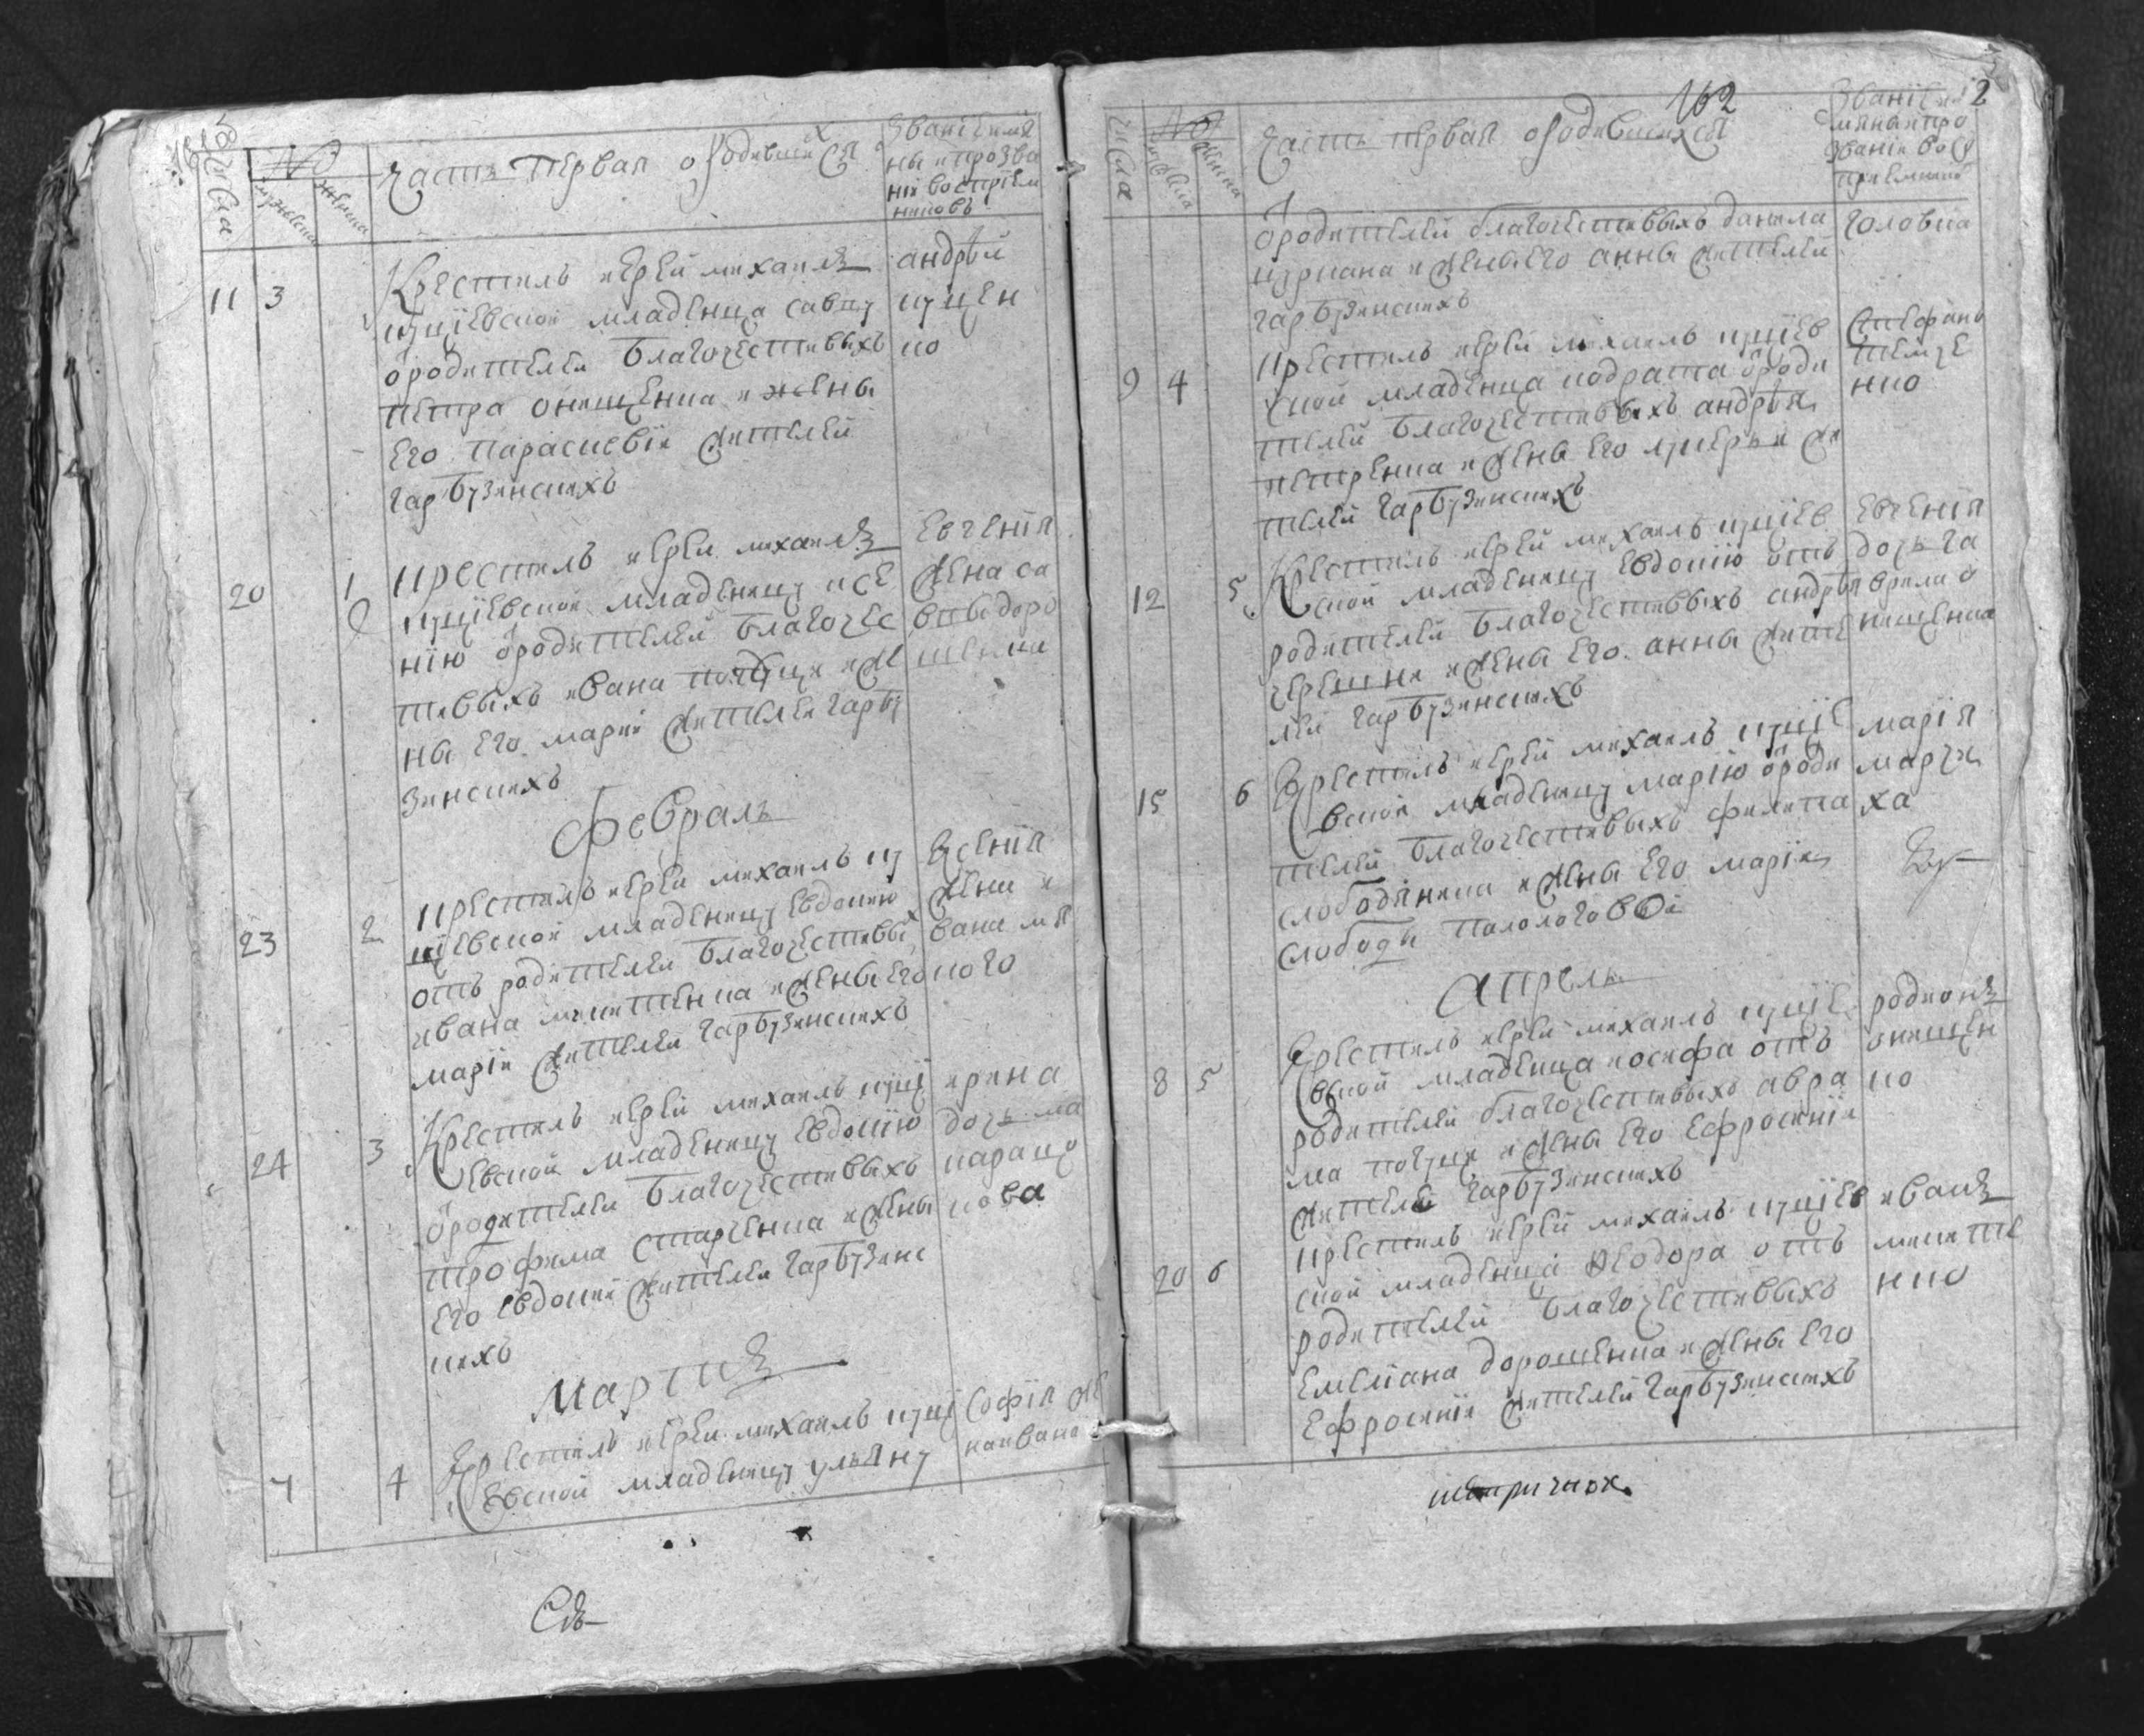 Числа
№
мужеска
женска
Часть первая о родившихся
Званіе имя
ны и прозва
ніе воспріем
никовъ
11 3
Крестилъ иерей михаилъ
куціевской младенца савку
о родителей благочестивыхъ
петра онищенка и жены
его параскевіи жителей
гарбузинскихъ
андрѣй
куцен
ко
20 1
крестилъ иерей михаилъ
куціевской младеницу ксе
нію о родителей благочес
тивыхъ ивана и же
ны его марии жителей гарбу
зинскихъ
евгенія
жена са
вы доро
шенка
февраль
23 2
крестилъ иерей михаилъ ку
ціевской младеницу евдокию
отъ родителей благочестивых
ивана микитенка и жены его
маріи жителей гарбузинскихъ
ксенія
жена и
вана мя
кого
24 3
Крестилъ иерей михаилъ куці
евской младеницу евдокію
о родителей благочестивыхъ
трофима старченка и жены
его евдокии жителей гарбузинс
кихъ
ирина
дочь ма
карацю
кова
Мартъ
4 4
Крестилъ иерей михаилъ куці
евской младеницу ульяну
софія же
на ивана
162
2
Числа
№
мужеска
женска
Часть первая о родившихся
Званіе и
мяна и про
званіе вос
приемник
о родителей благочестивыхъ данила
цуркана и жены его анны жителей
гарбузинскихъ
головка
9 4
крестилъ иерей михаилъ куціев
ской младенца кодрата о роди
телей благочестивыхъ андрѣя
петренка и жены его лукерьи жи
телей гарбузинскихъ
Стефанъ
темче
нко
12 5
Крестилъ иерей михаилъ куціев
ской младеницу евдокію отъ
родителей благочестивыхъ андрѣя
черешни и жены его анны жите
лей гарбузинскихъ
евгенія
дочь га
врила о
нищенка
15 6
Крестилъ иерей михаилъ куціе
вской младеницу марію о роди
телей благочестивыхъ филипа
слободяника и жены его маріи
слободы палологовой
марія
марчи
ха
апрель
8 5
Крестилъ иерей михаилъ куціе
вской младенца иосифа отъ
родителей благочестивыхъ авра
ма и жены его ефросиніи
жителей гарбузинскихъ
родионъ
онищен
ко
20 6
крестилъ иерей михаилъ куціев
ской младенца феодора отъ
родителей благочестивыхъ
емеліана дорошенка и жены его
ефросиніи жителей гарбузинскихъ
иванъ
миките
нко